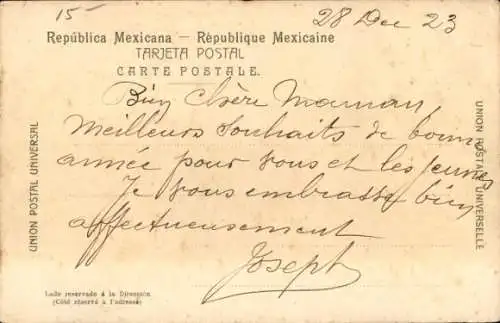 15
28 Dec 23
República Mexicana — République Mexicaine
TARJETA POSTAL
CARTE POSTALE.
Bien Chère Maman
Meilleurs Souhaits de bonne
année pour vous et les jeunes
Je vous embrasse bien
affectueusement
Joseph
UNION POSTAL UNIVERSAL
UNION POSTALE UNIVERSELLE
Lado reservado á la Dirección
(Côté réservé a l'adresse)